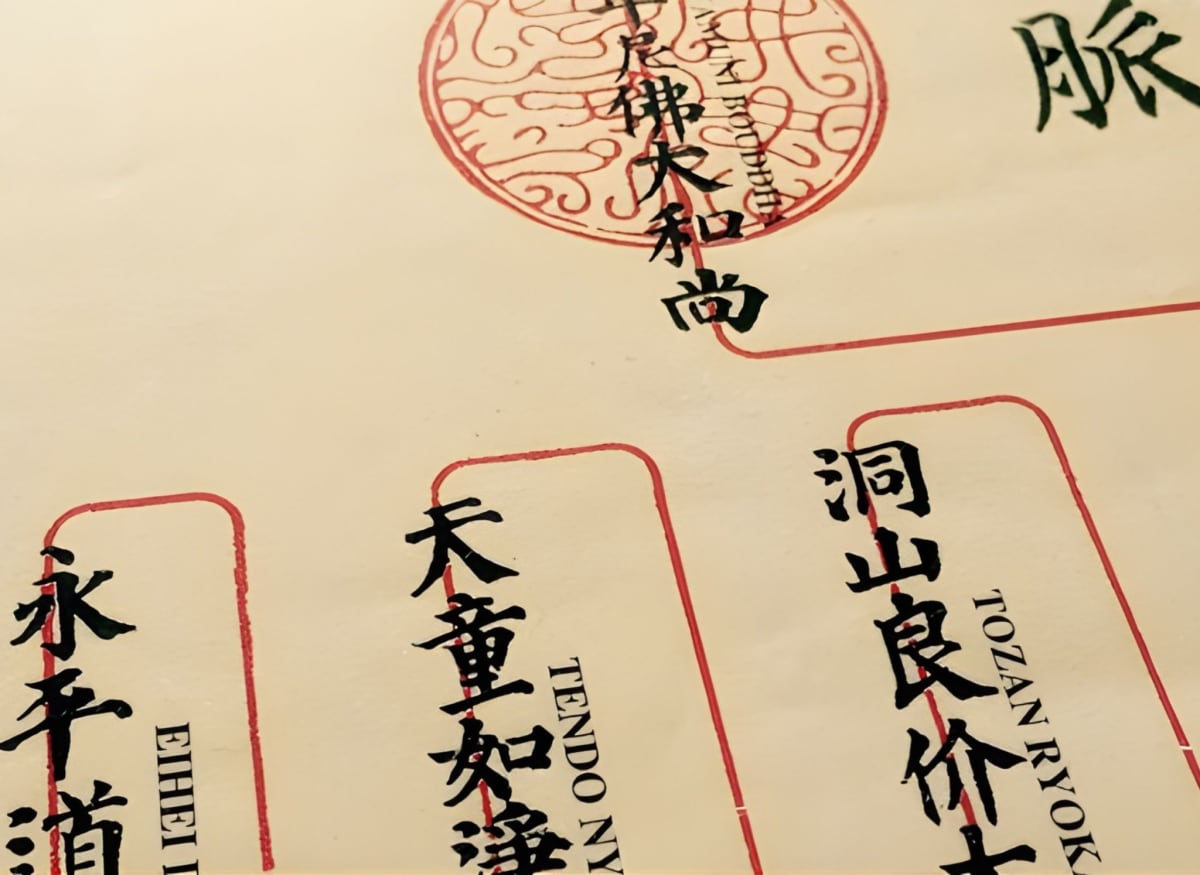 脈
尼佛大和尚
BOUDDHA
洞山良价大
TOZAN RYOK
天童如淨
TENDO NY
永平道
EIHEI